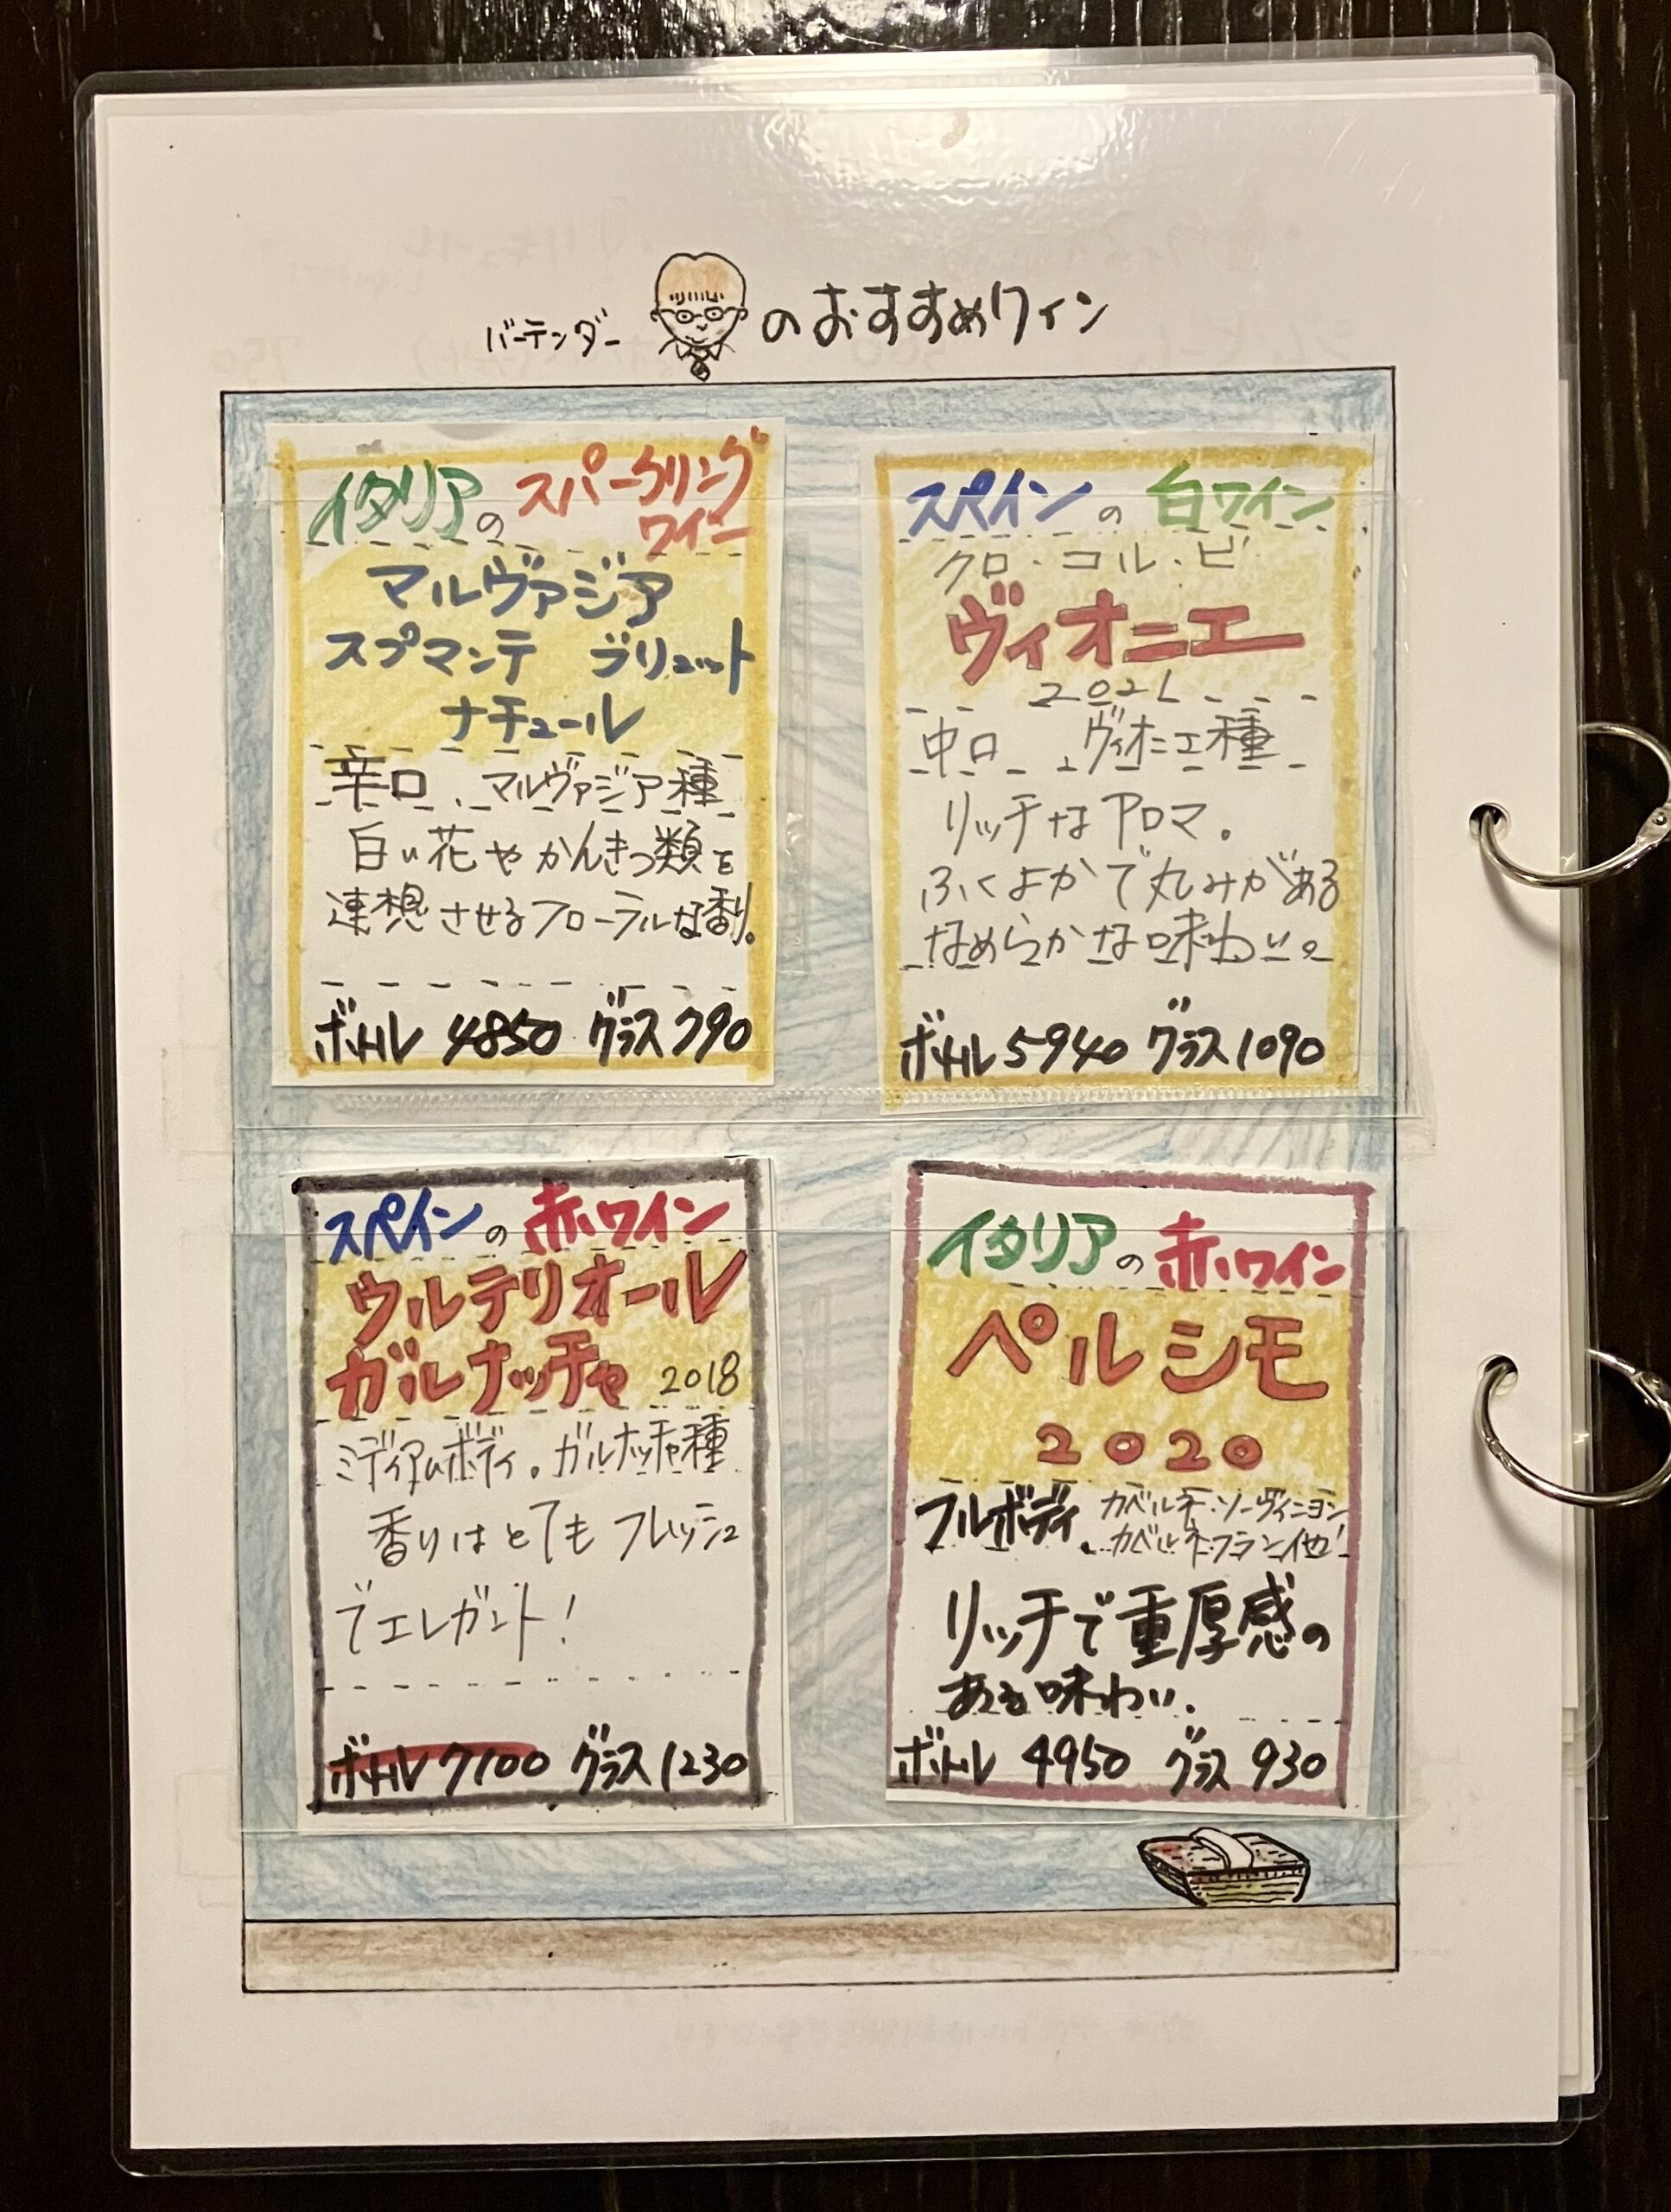 バーテンダー のおすすめワイン
イタリアのスパークリング
ワイン
マルヴァジア
スプマンテ ブリュット
ナチュール
辛口、マルヴァジア種
白い花やかんきつ類を
連想させるフローラルな香り。
ボトル 4850 グラス 790
スペインの白ワイン
クロ・コル・ビ
ヴィオニエ
2021
中口、ヴィオニエ種
リッチなアロマ。
ふくよかで丸みがある
なめらかな味わい。
ボトル 5940 グラス 1090
スペインの赤ワイン
ウルテリオール
ガルナッチャ 2018
ミディアムボディ。ガルナッチャ種
香りはとてもフレッシュ
でエレガント!
ボトル 7100 グラス 1230
イタリアの赤ワイン
ペルシモ
2020
フルボディ、カベルネ・ソーヴィニヨン
カベルネ・フラン他
リッチで重厚感の
ある味わい。
ボトル 4950 グラス 930